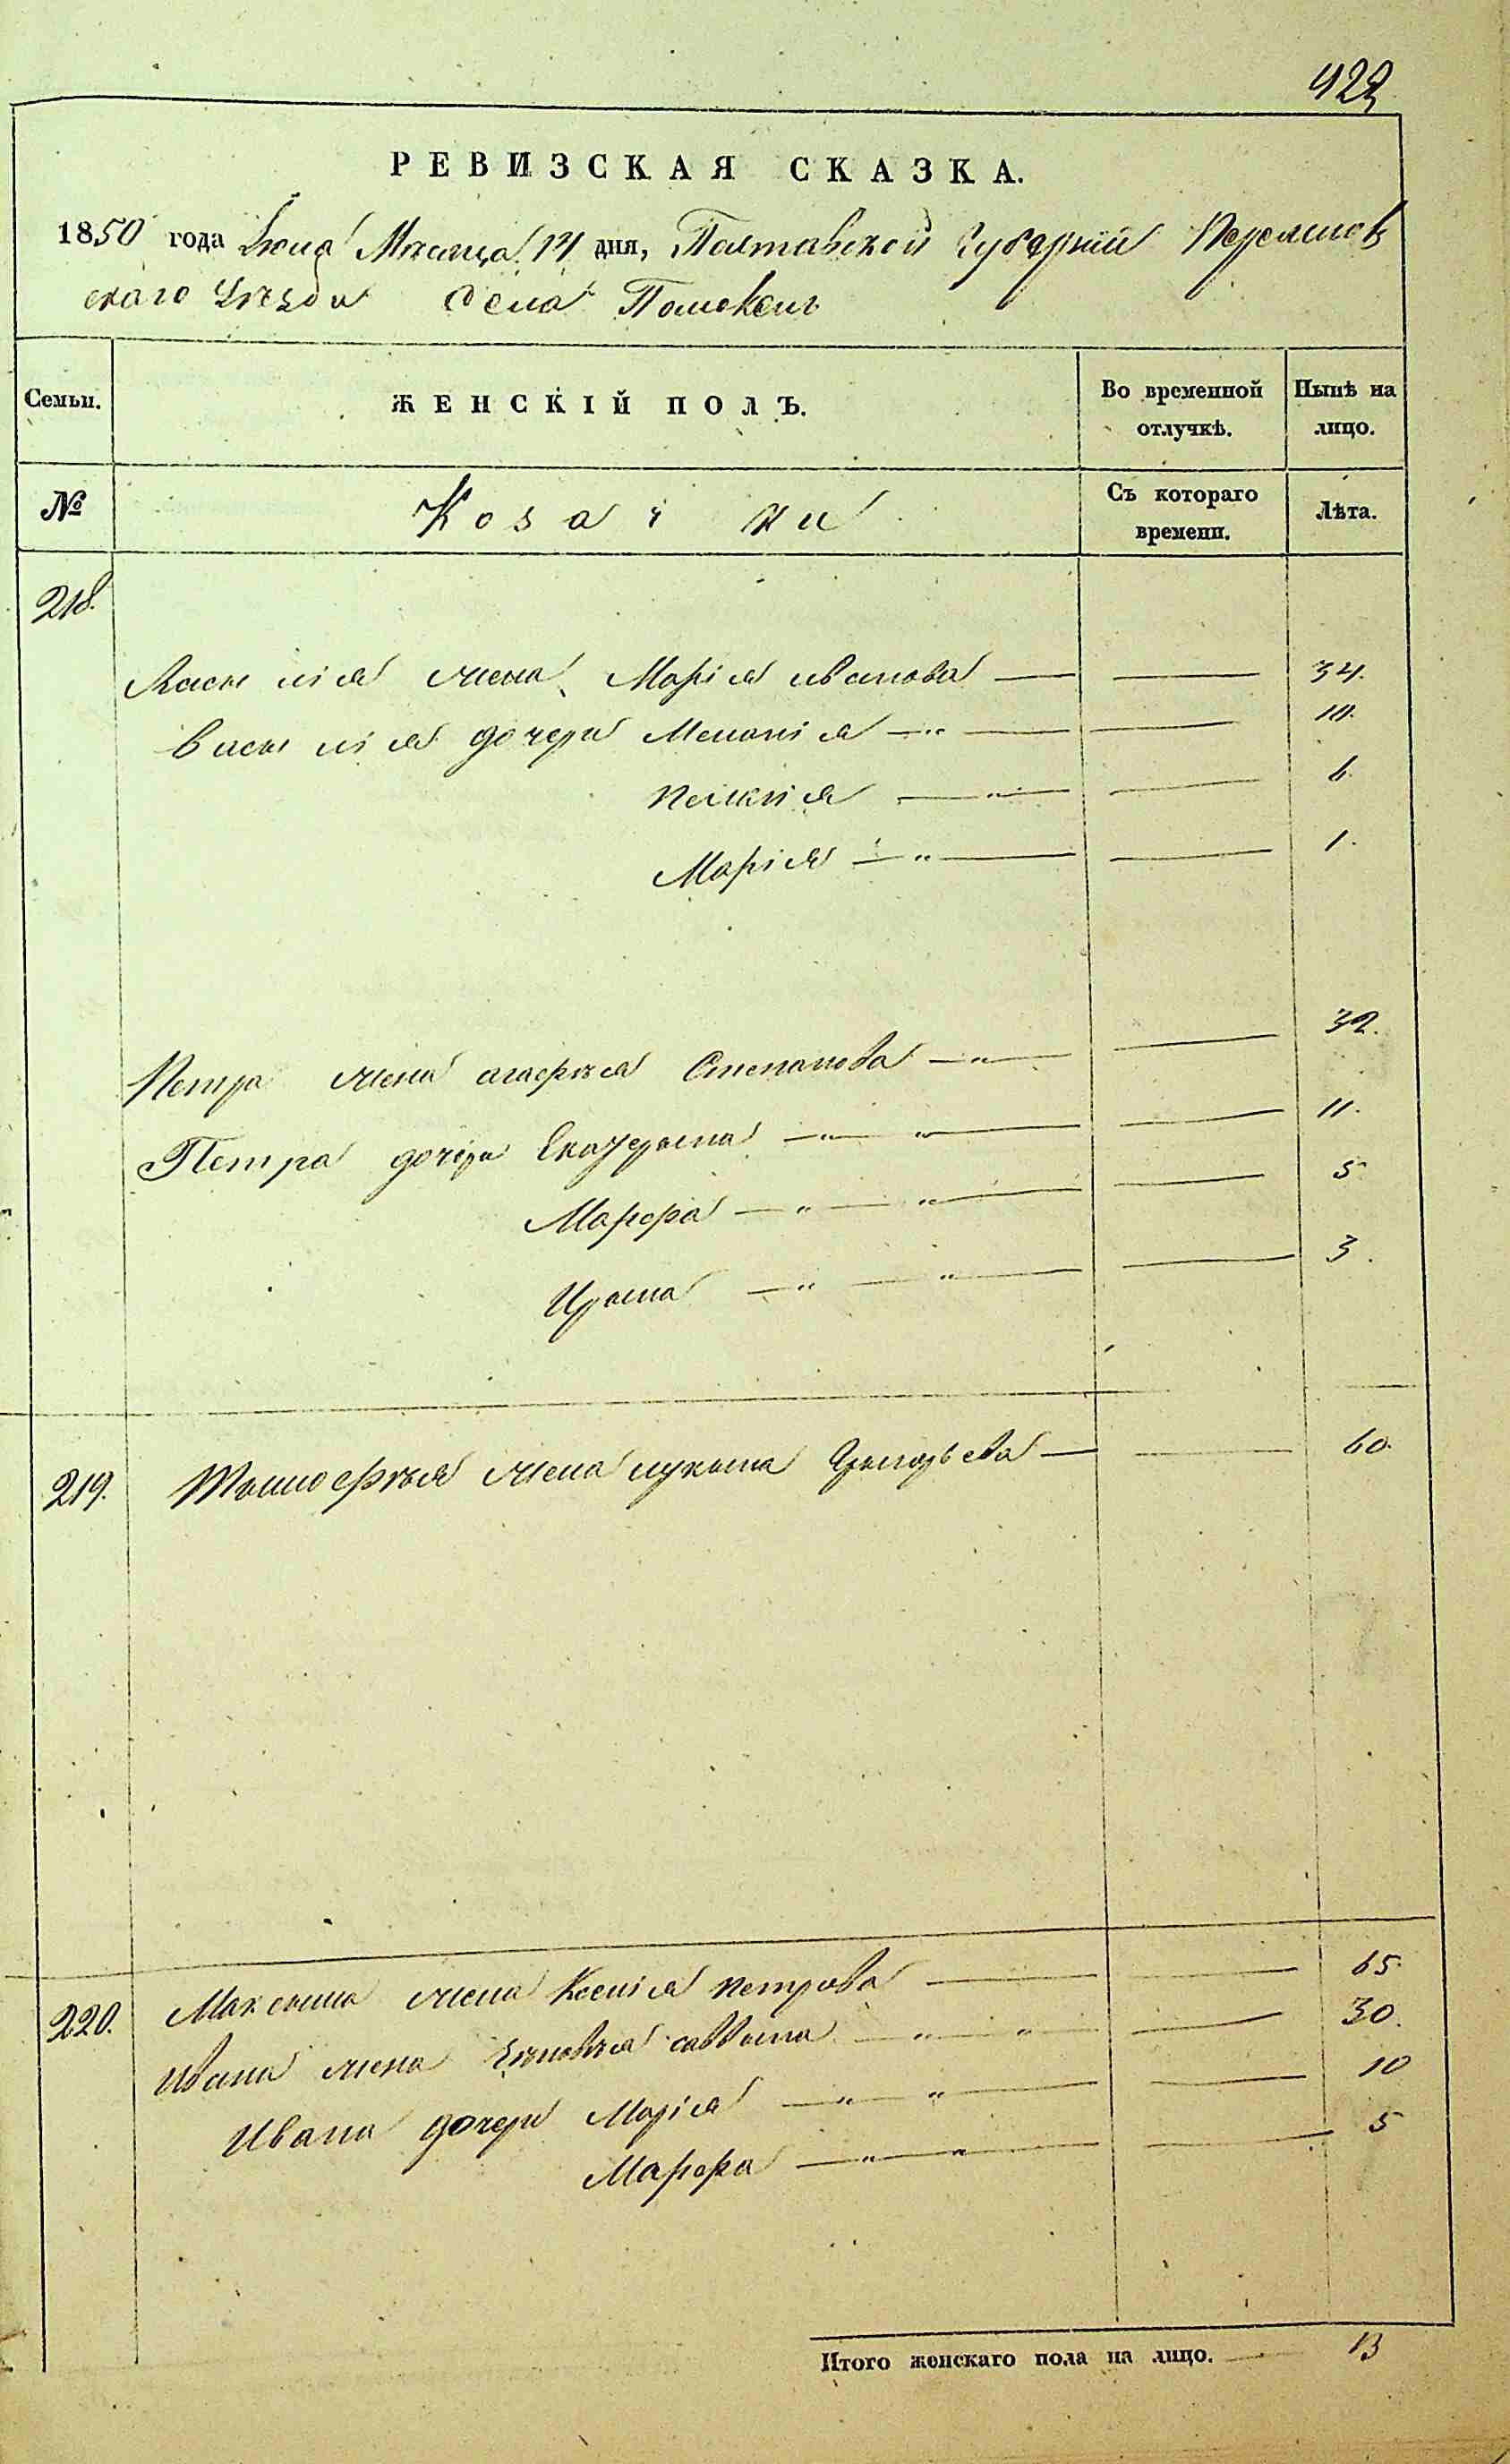 422
РЕВИЗСКАЯ СКАЗКА.
1850 года Июля Месяца 14 дня, Полтавской Губерніи Переяслов
скаго Уѣзда Села Помоклъ
Семьи. ЖЕНСКІЙ ПОЛЪ. Во временной отлучкѣ. Нынѣ на лицо.
№ Козачки Съ котораго времени. Лѣта.
218.
Василія жена Марія иванова — — 34.
Василія дочери Меланія — " — — 10.
пелагія — " — — 6.
Марія — " — — 1.
Петра жена агафія Степанова — " — — 32.
Петра дочери Екатерина — " — " — — 11.
Марфа — " — " — — 5
Ирина — " — " — — 3.
219. Тимофѣя жена Григорьева — — 60.
220. Максима жена Ксенія петрова — — 65.
Ивана жена саввина — " — " — — 30.
Ивана дочери Марія — " — " — — 10
Марфа — " — " — — 5
Итого женскаго пола на лицо. — 13